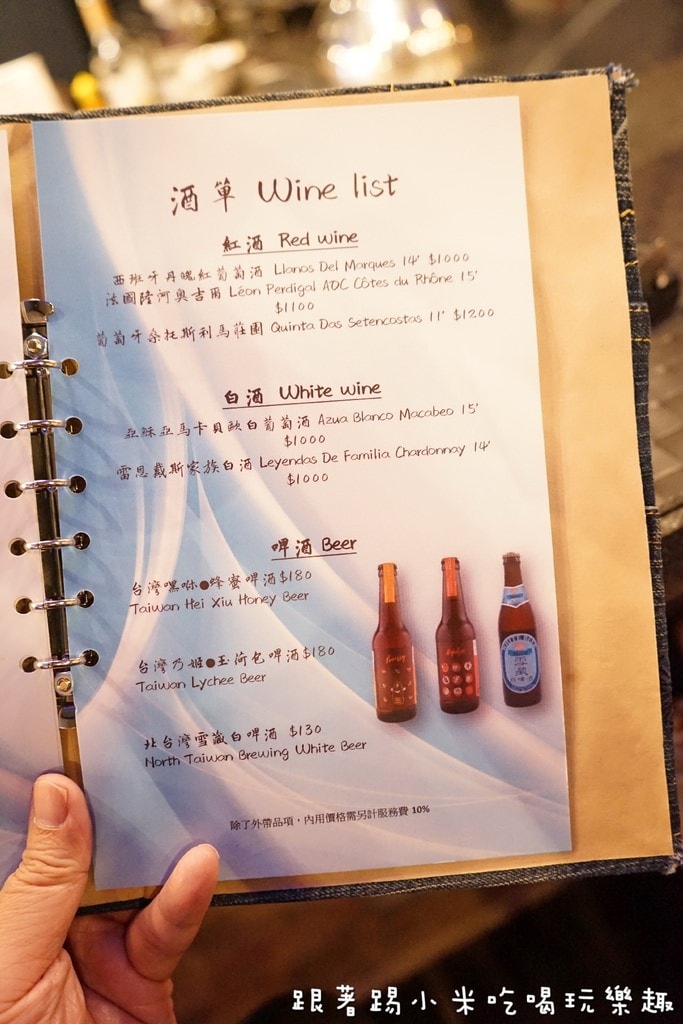 酒單 Wine list
紅酒 Red wine
西班牙丹魄紅葡萄酒 Llanos Del Marques 14' $1000
法國隆河奧吉爾 Léon Perdigal AOC Côtes du Rhône 15'
$1100
葡萄牙桑托斯利馬莊園 Quinta Das Setencostas 11' $1200
白酒 White wine
亞穌亞馬卡貝歐白葡萄酒 Azua Blanco Macabeo 15'
$1000
雷恩戴斯家族白酒 Leyendas De Familia Chardonnay 14'
$1000
啤酒 Beer
台灣嘿咻●蜂蜜啤酒$180
Taiwan Hei Xiu Honey Beer
台灣乃姬●玉荷包啤酒$180
Taiwan Lychee Beer
北台灣雪藏白啤酒 $130
North Taiwan Brewing White Beer
除了外帶品項，內用價格需另計服務費 10%
跟著踢小米吃喝玩樂趣